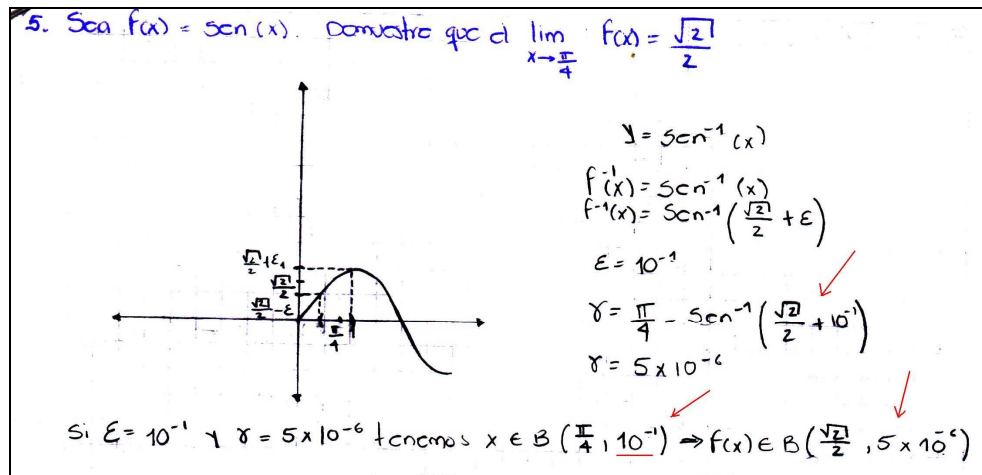 5. Sea f(x) = sen (x). Demuestre que el lim x→π/4 f(x) = √2/2
y = sen⁻¹ (x)
f⁻¹(x) = sen⁻¹ (x)
f⁻¹(x) = sen-1 (√2/2 + ε)
ε = 10⁻¹
γ = π/4 - sen⁻¹ (√2/2 + 10⁻¹)
γ = 5 x 10⁻⁶
√2/2 + ε₁
√2/2
√2/2 - ε
π/4
Si ε = 10⁻¹ y γ = 5 x 10⁻⁶ tenemos x ∈ B (π/4, 10⁻¹) ⇒ f(x) ∈ B (√2/2, 5 x 10⁻⁶)